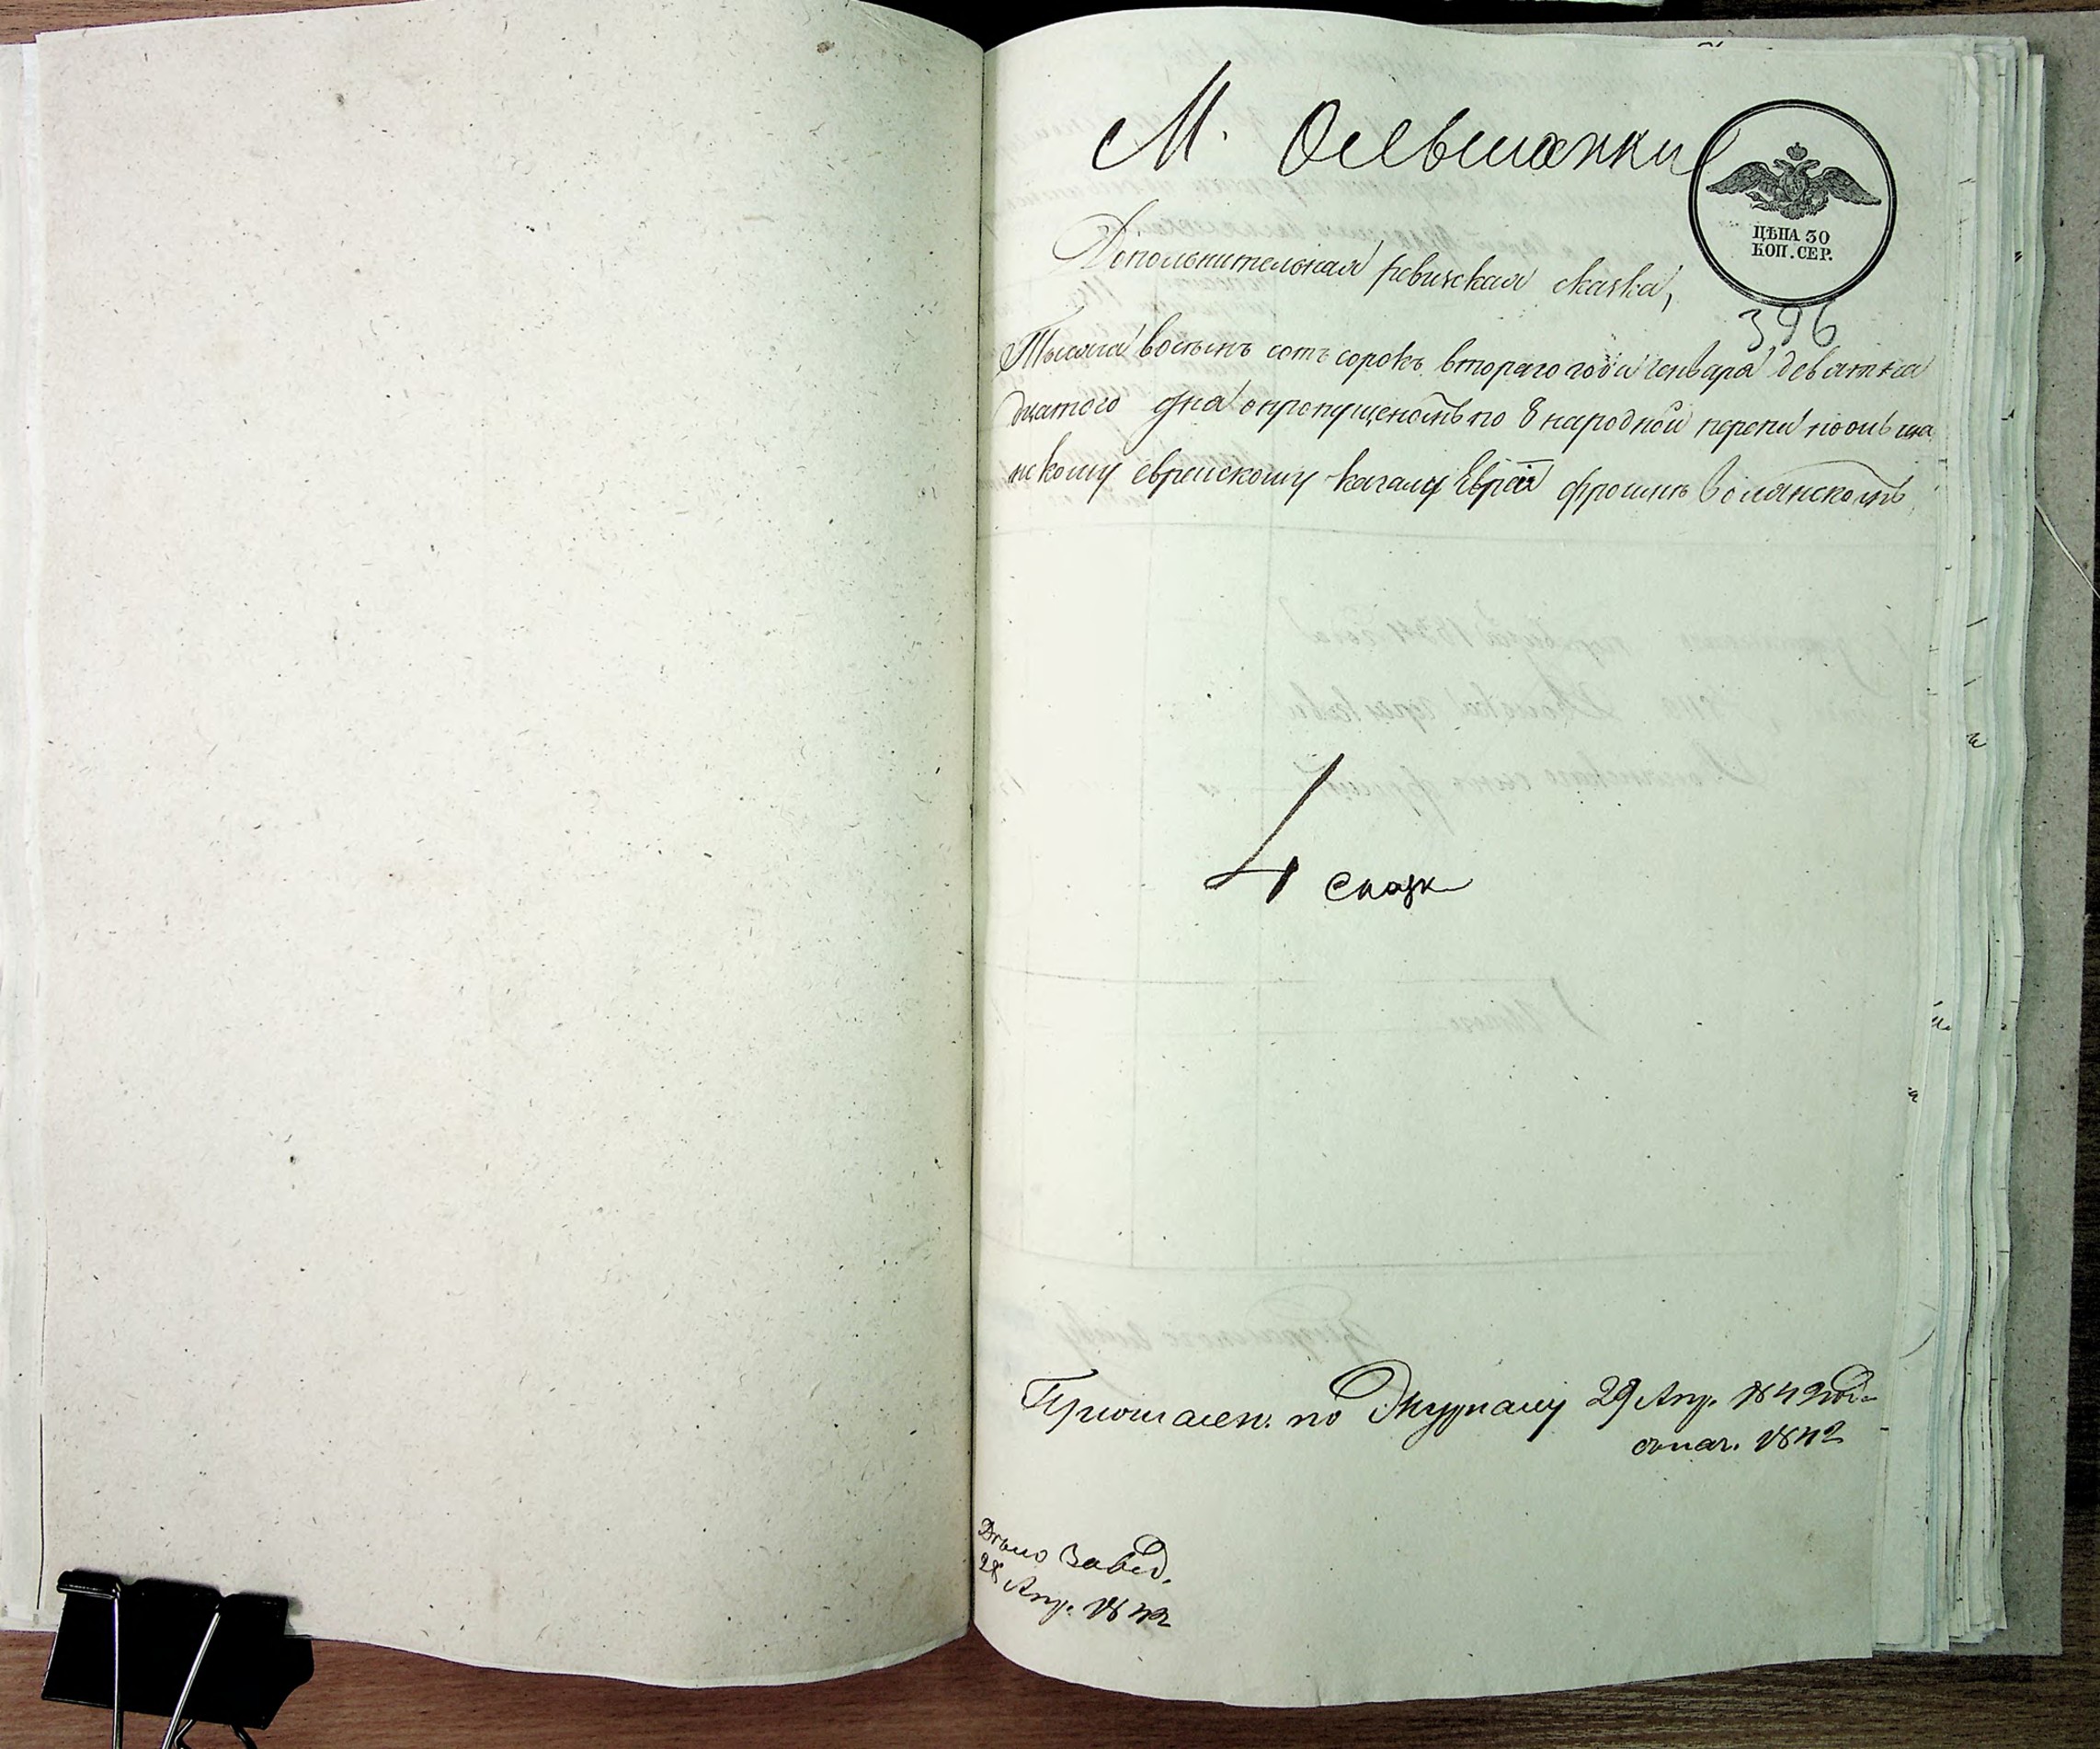 М. Ольшанки
ЦѢНА 30
КОП. СЕР.
Дополнительная ревизская сказка,
396
Тысяча восемь сотъ сорокъ втораго года Генваря девятна
дцатого дня о пропущеномъ по 8 народной перепи по ольша
нскому еврейскому кагалу Евреѣ Фроимѣ Волянскомъ
4 сказк
Приоглаен. по Журналу 29 Апр. 1842 год
1842
Дѣло завед.
28 Апр. 1842